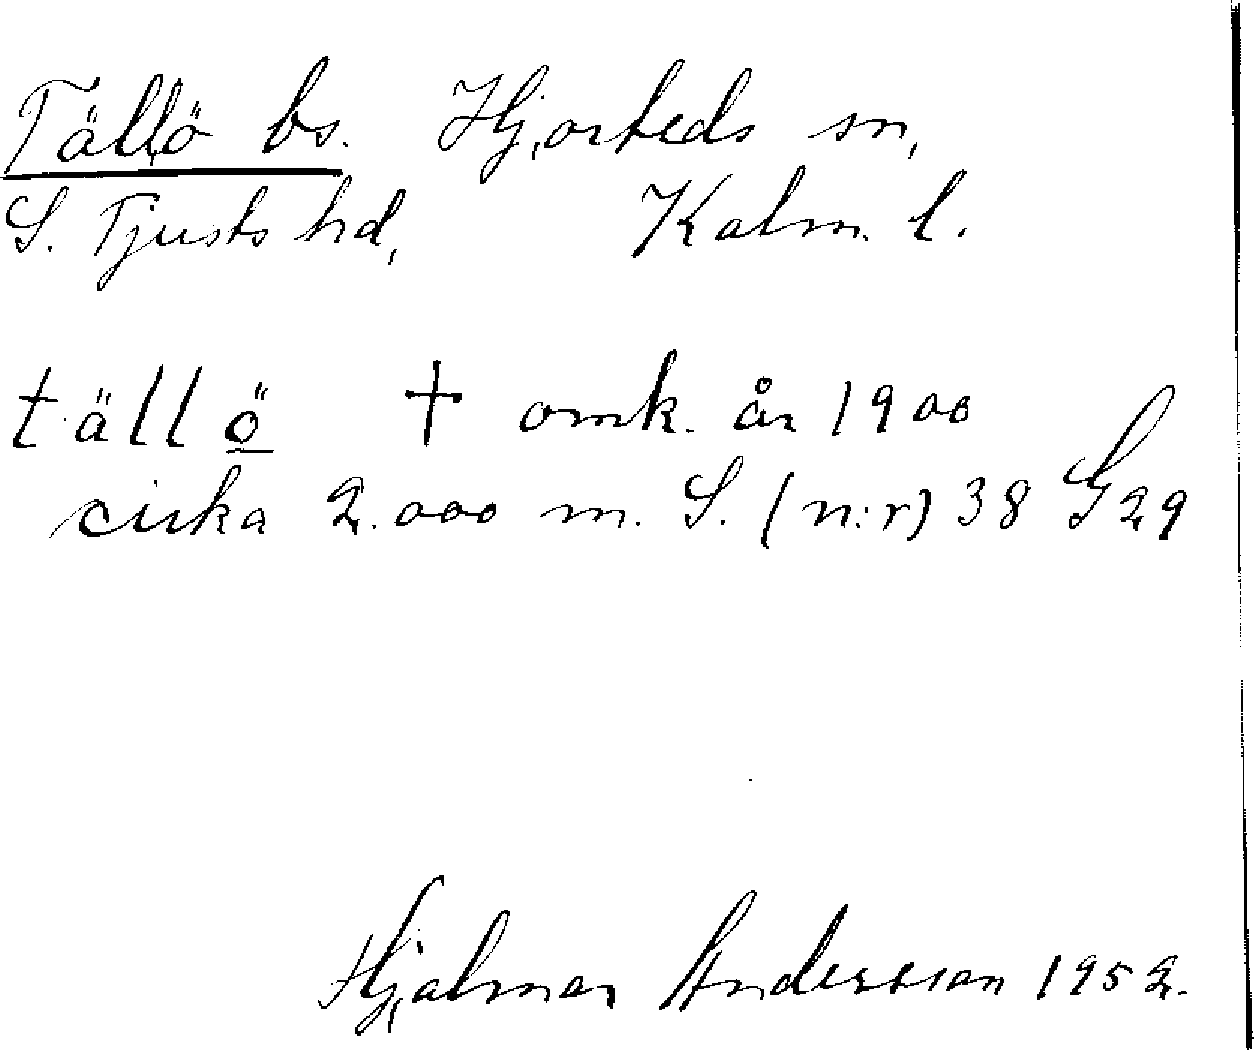 Tällö bs. Hjorteds sn,
S. Tjusts hd, Kalm. l.
tällö † omk. år 1900
cirka 2.000 m. S. (n:r) 38 G 29
Hjalmar Andersson 1952.